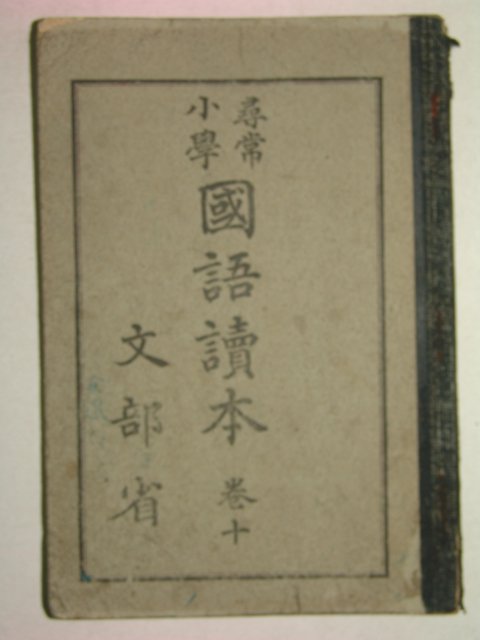 尋常
小學
國語讀本 巻十
文部省